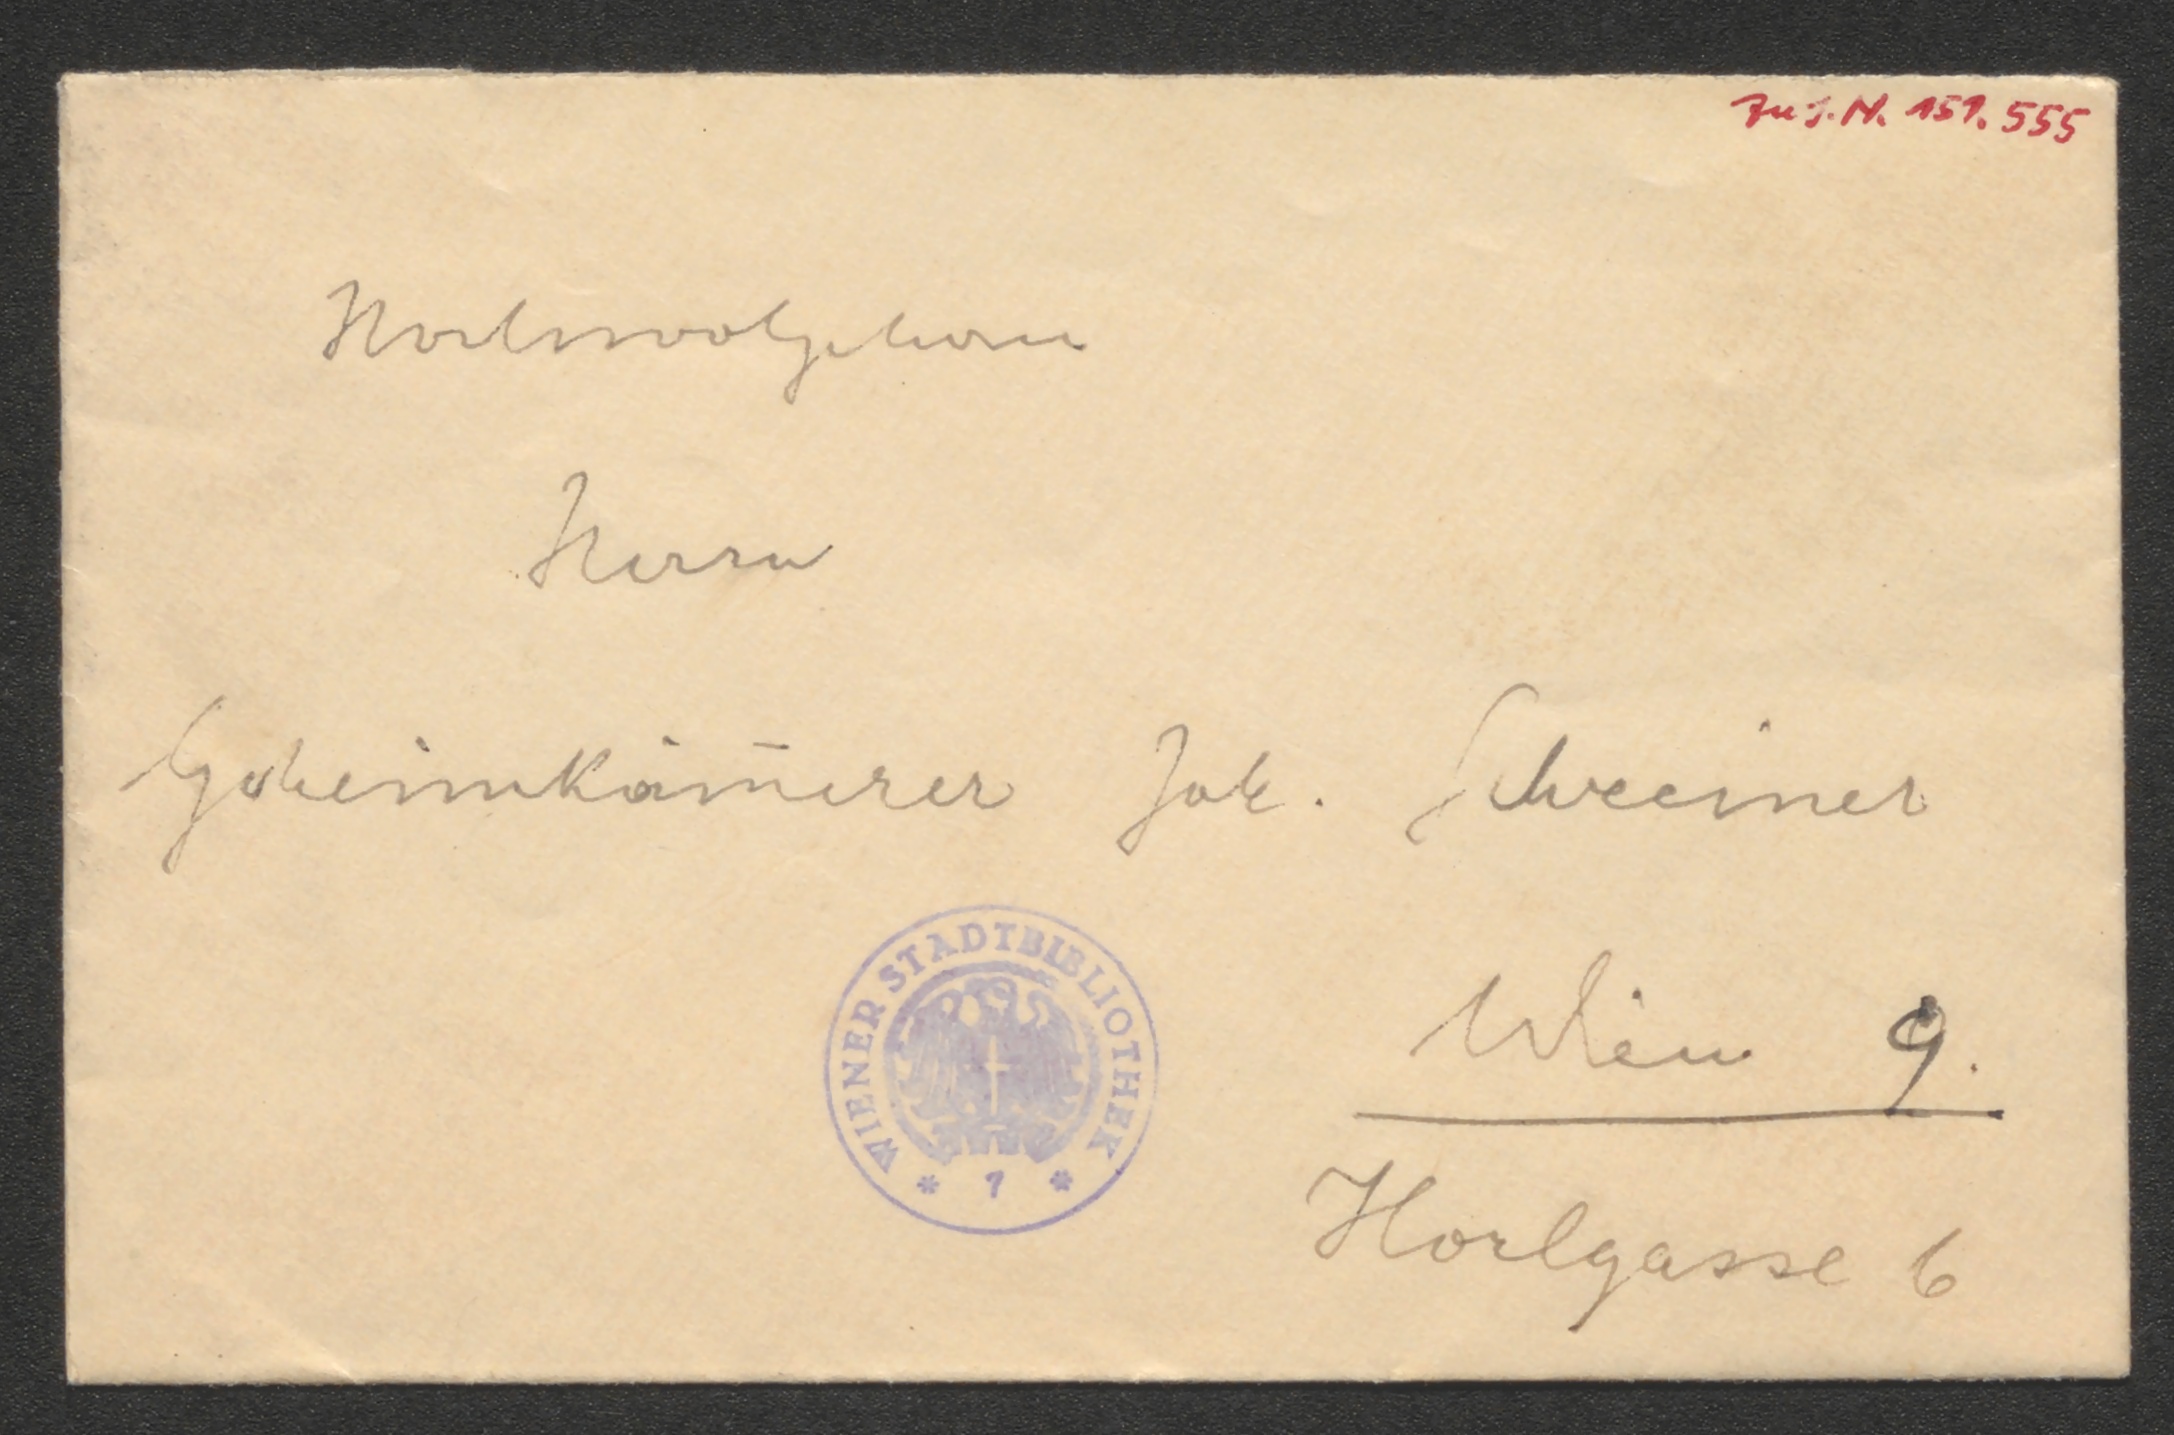 Zu J.N. 151.555
Hochwohlgeboren
Herrn
Geheimkam̄erer Jok. Schreiner
Wien 9.
Horlgasse 6
WIENER STADTBIBLIOTHEK
* 7 *